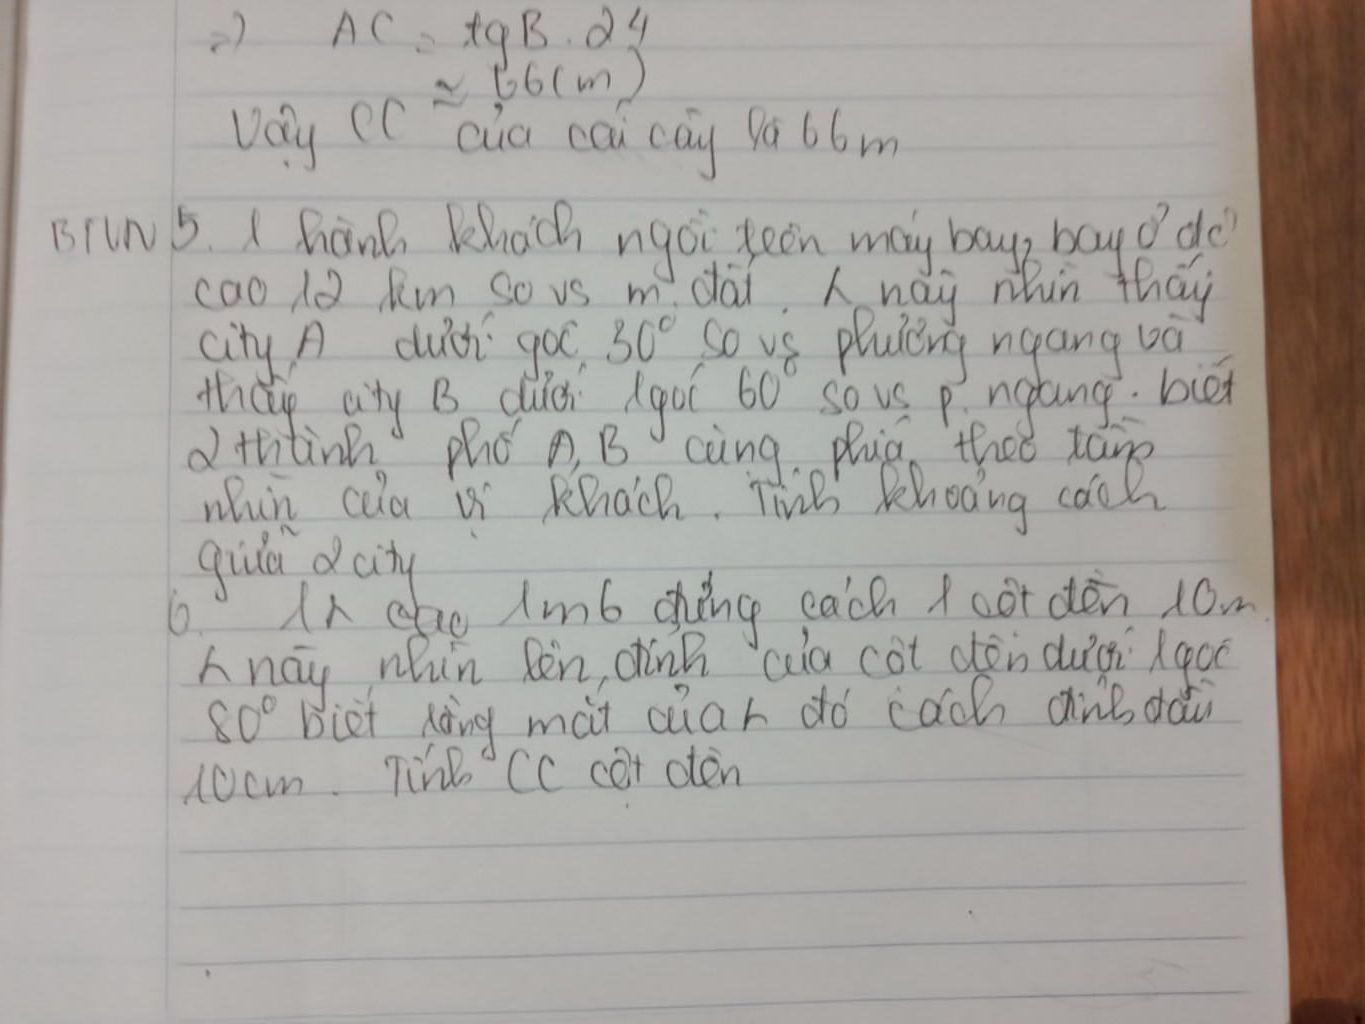 =) AC = tgB . 24
≈ 66(m)
Vậy CC của cái cây là 66m
BTVN 5. 1 hành khách ngồi trên máy bay, bay ở độ
cao 12 km so vs m. đất. h này nhìn thấy
city A dưới góc 30° so vs phương ngang và
thấy city B dưới 1 góc 60° so vs p. ngang. biết
2 thành phố A, B cùng phía theo tầm
nhìn của vị khách. Tính khoảng cách
giữa 2 city
6. 1 h cao 1m6 đứng cách 1 cột đèn 10m
h này nhìn lên đỉnh của cột đèn dưới 1 góc
80° biết ròng mắt của h đó cách đỉnh đầu
10cm. Tính CC cột đèn